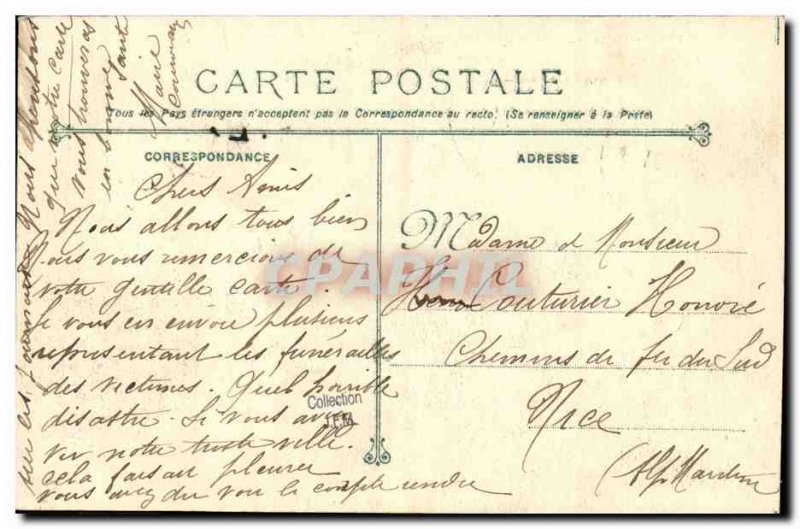 CARTE POSTALE
Tous les Pays étrangers n'acceptent pas la Correspondance au recto. (Se renseigner à la Poste)
CORRESPONDANCE
ADRESSE
Chers Amis
Nous allons tous bien
Nous vous remercions de
votre gentille carte.
Je vous en envoie plusieurs
représentant les funérailles
des victimes. Quel horrible
disastre. Si vous aviez
vu notre triste ville.
cela faisait pleurer
vous avez du voir le compte rendu
sur les journaux Nous
que votre carte
vous trouveras
en bonne
santé
Marie
Madame et Monsieur
Couturier Honoré
Chemins de fer du Sud
Nice
(Alp. Maritime
CPAPHIL
Collection
J.F.M.